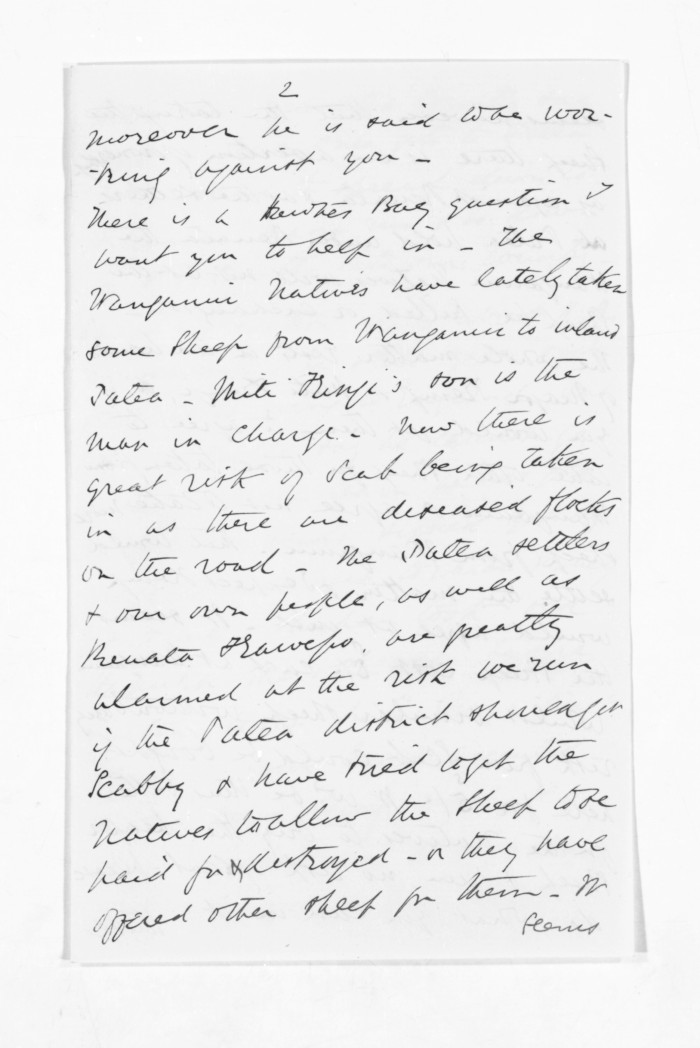 2
moreover he is said to be wor-
-king against you -
There is a Hawkes Bay question I
want you to help in - The
Wanganui Natives have lately taken
some sheep from Wanganui to inland
Patea - Mete Kingi's son is the
man in charge - Now there is
great risk of Scab being taken
in as there are diseased flocks
on the road - The Patea settlers
& our own people, as well as
Renata Kawepo, are greatly
alarmed at the risk we run
if the Patea district should get
Scabby & have tried to get the
Natives to allow the sheep to be
paid for & destroyed - or they have
offered other sheep for them - It
seems